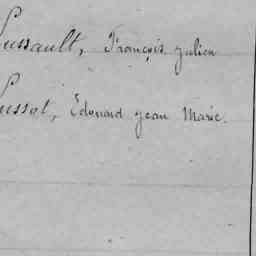 Lussault, François Julien
Lussot, Edouard Jean Marie.